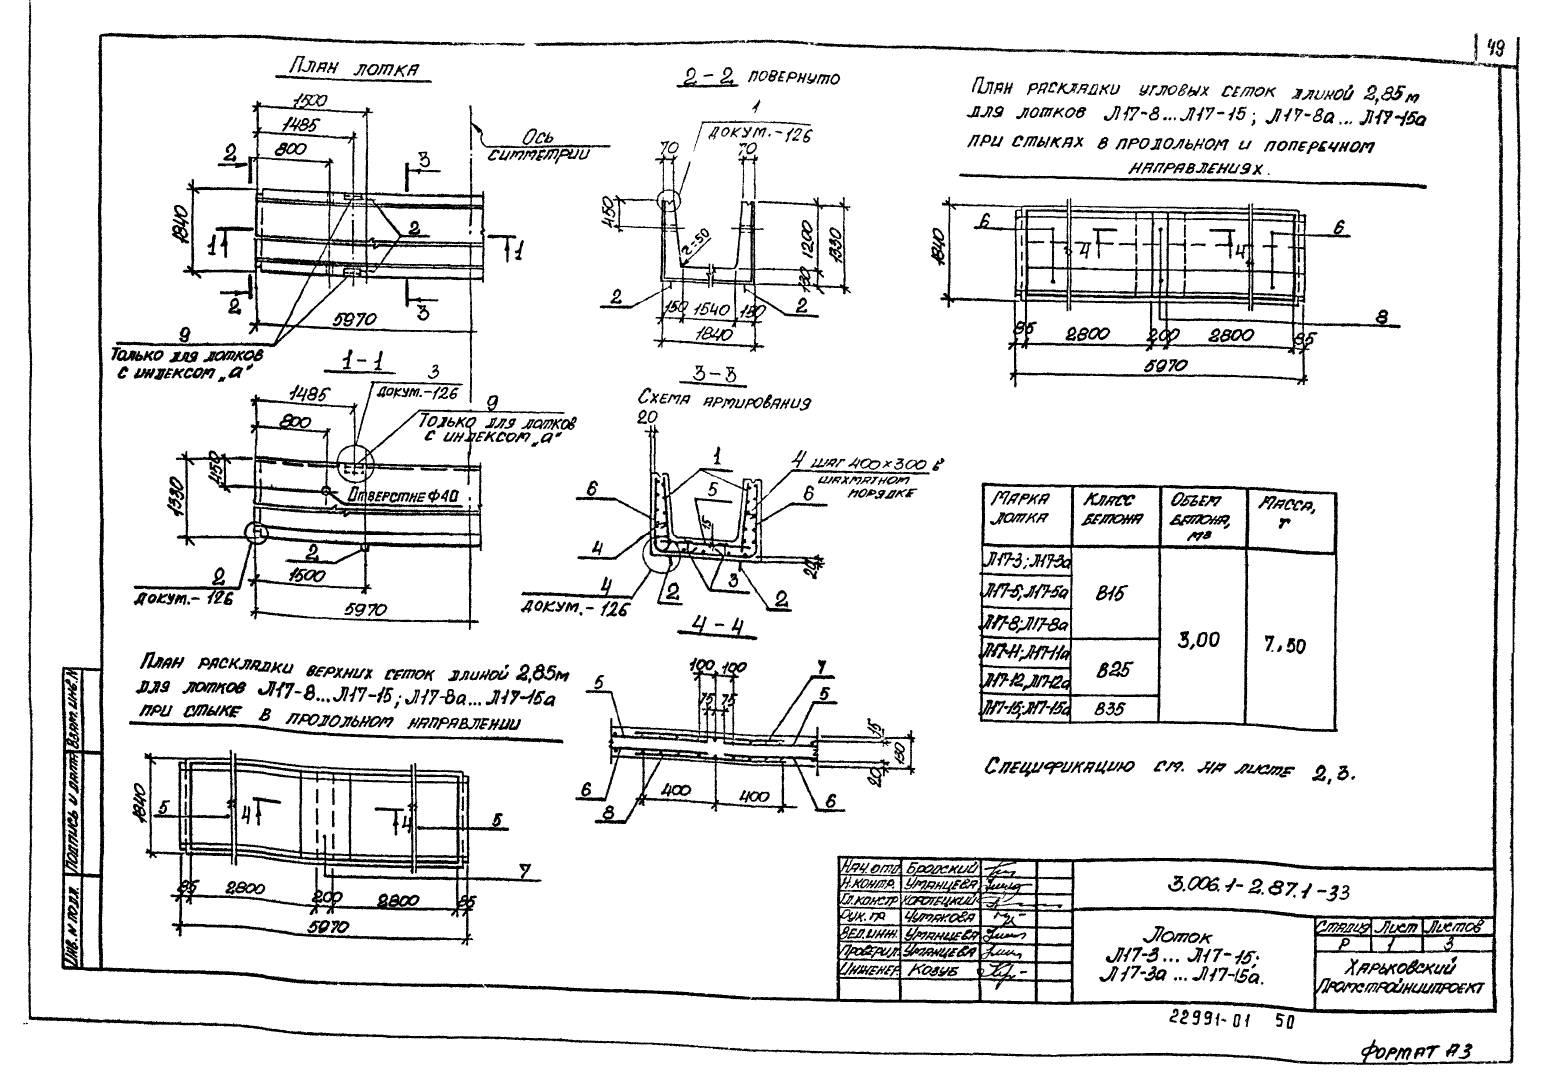 49
План лотка
1500
1485
800
Ось
симметрии
2
3
1840
1
2
1
2
3
5970
9
Только для лотков
с индексом „а"
2-2 повернуто
1
докум.-126
70
70
450
r=50
1200
1330
130
2
2
150
1540
150
1840
План раскладки угловых сеток длиной 2,85м
для лотков Л17-8...Л17-15; Л17-8а...Л17-15а
при стыках в продольном и поперечном
направлениях.
6
6
4
4
1840
8
85
2800
200
2800
85
5970
1-1
3
докум.-126
1485
800
9
Только для лотков
с индексом „а"
1330
450
Отверстие Ф40
2
2
докум.-126
1500
5970
3-3
Схема армирования
20
1
4 шаг 400×300 в
шахматном
порядке
5
6
6
15
4
20
4
докум.-126
2
3
2
4-4
100
100
7
5
5
75
75
15
130
20
6
400
400
6
8
Марка
лотка
Класс
бетона
Объем
бетона,
м³
Масса,
т
Л17-3; Л17-3а
Л17-5; Л17-5а
В15
Л17-8; Л17-8а
3,00
7,50
Л17-11; Л17-11а
В25
Л17-12; Л17-12а
Л17-15; Л17-15а
В35
План раскладки верхних сеток длиной 2,85м
для лотков Л17-8...Л17-15; Л17-8а...Л17-15а
при стыке в продольном направлении
1840
5
4
4
5
7
85
2800
200
2800
85
5970
Спецификацию см. на листе 2,3.
Взам. инв. №
Подпись и дата
Инв. № подл.
Нач. отд. Бродский
Н. контр. Уманцева
Гл. констр. Коротецкий
Рук. гр. Чумакова
Вед. инж. Уманцева
Проверил Уманцева
Инженер Козуб
3.006.1-2.87.1-33
Лоток
Л17-3...Л17-15;
Л17-3а...Л17-15а.
Стадия Лист Листов
Р 1 3
Харьковский
Промстройниипроект
22991-01 50
Формат А3